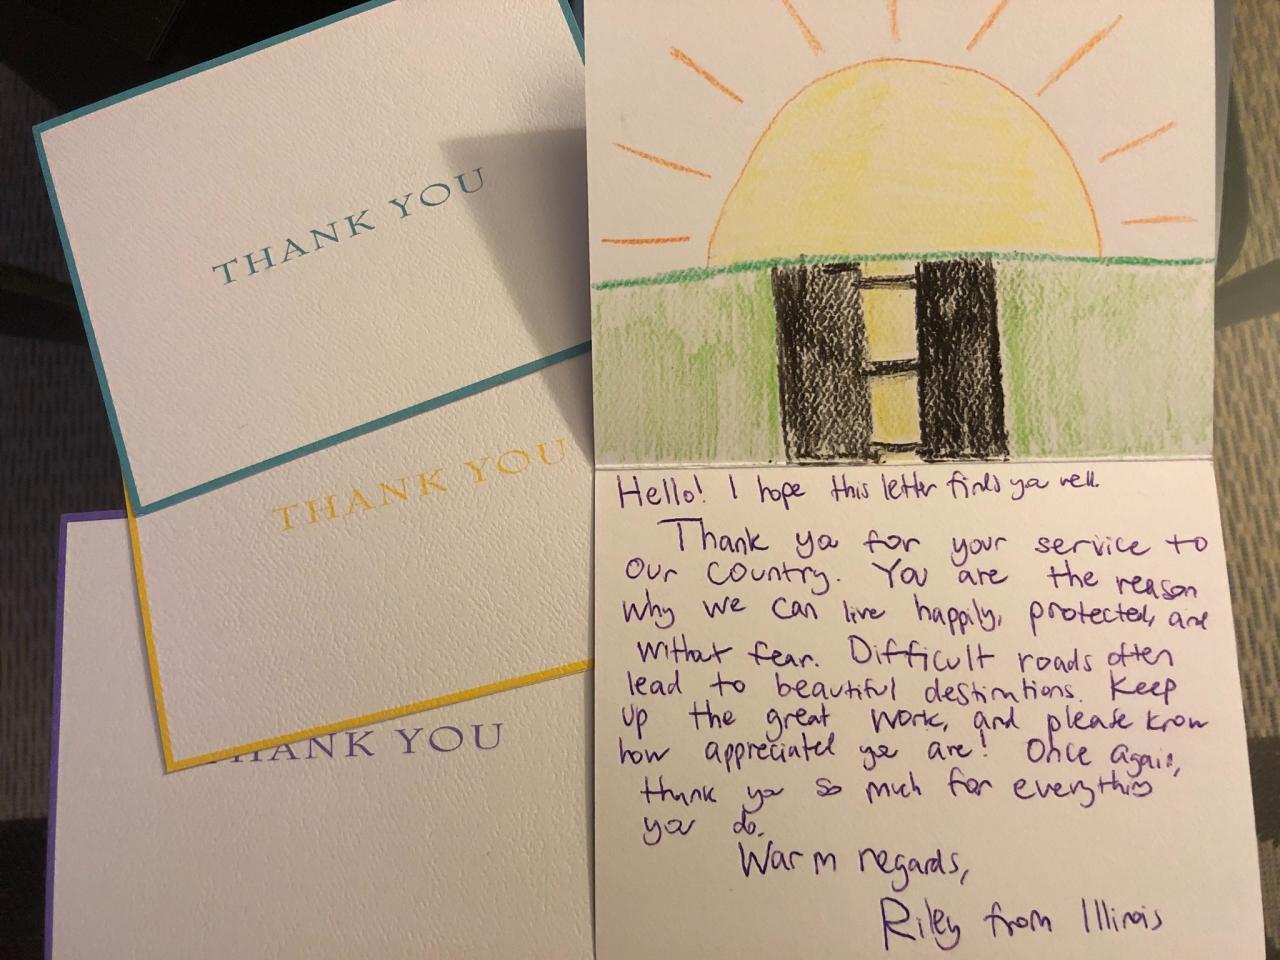 THANK YOU
THANK YOU
THANK YOU
Hello! I hope this letter finds you well.
Thank you for your service to
our country. You are the reason
why we can live happily, protected, and
without fear. Difficult roads often
lead to beautiful destinations. Keep
up the great work, and please know
how appreciated you are! Once again,
thank you so much for everything
you do.
Warm regards,
Riley from Illinois